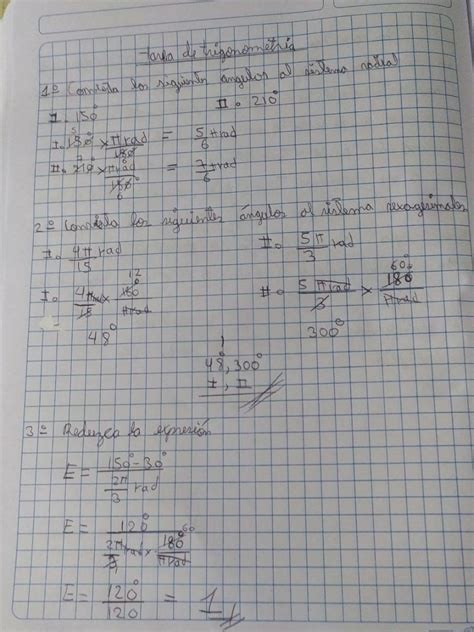 Tarea de trigonometría
1º Convierta los siguientes ángulos al sistema radial
I. 150° II. 210°
I. 150° × πrad/180° = 5/6 πrad
II. 210° × πrad/180° = 7/6 πrad
2º Convierta los siguientes ángulos al sistema sexagesimales
I. 4π/15 rad II. 5π/3 rad
I. 4πrad/15 × 180°/πrad II. 5πrad/3 × 180°/πrad
= 48° 300°
48°, 300°
I, II
3º Reduzca la expresión
E = 150° - 30° / 2π/3 rad
E = 120° / 2πrad/3 × 180°/πrad
E = 120°/120 = 1